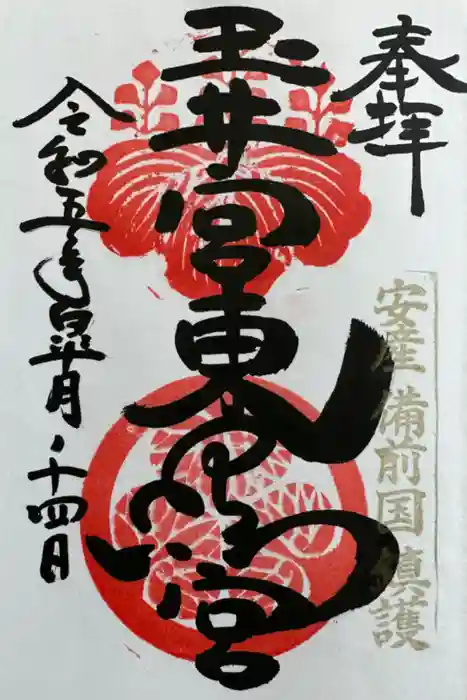 奉拝
安産 備前国鎮護
玉井宮東照宮
令和五年皐月十四日